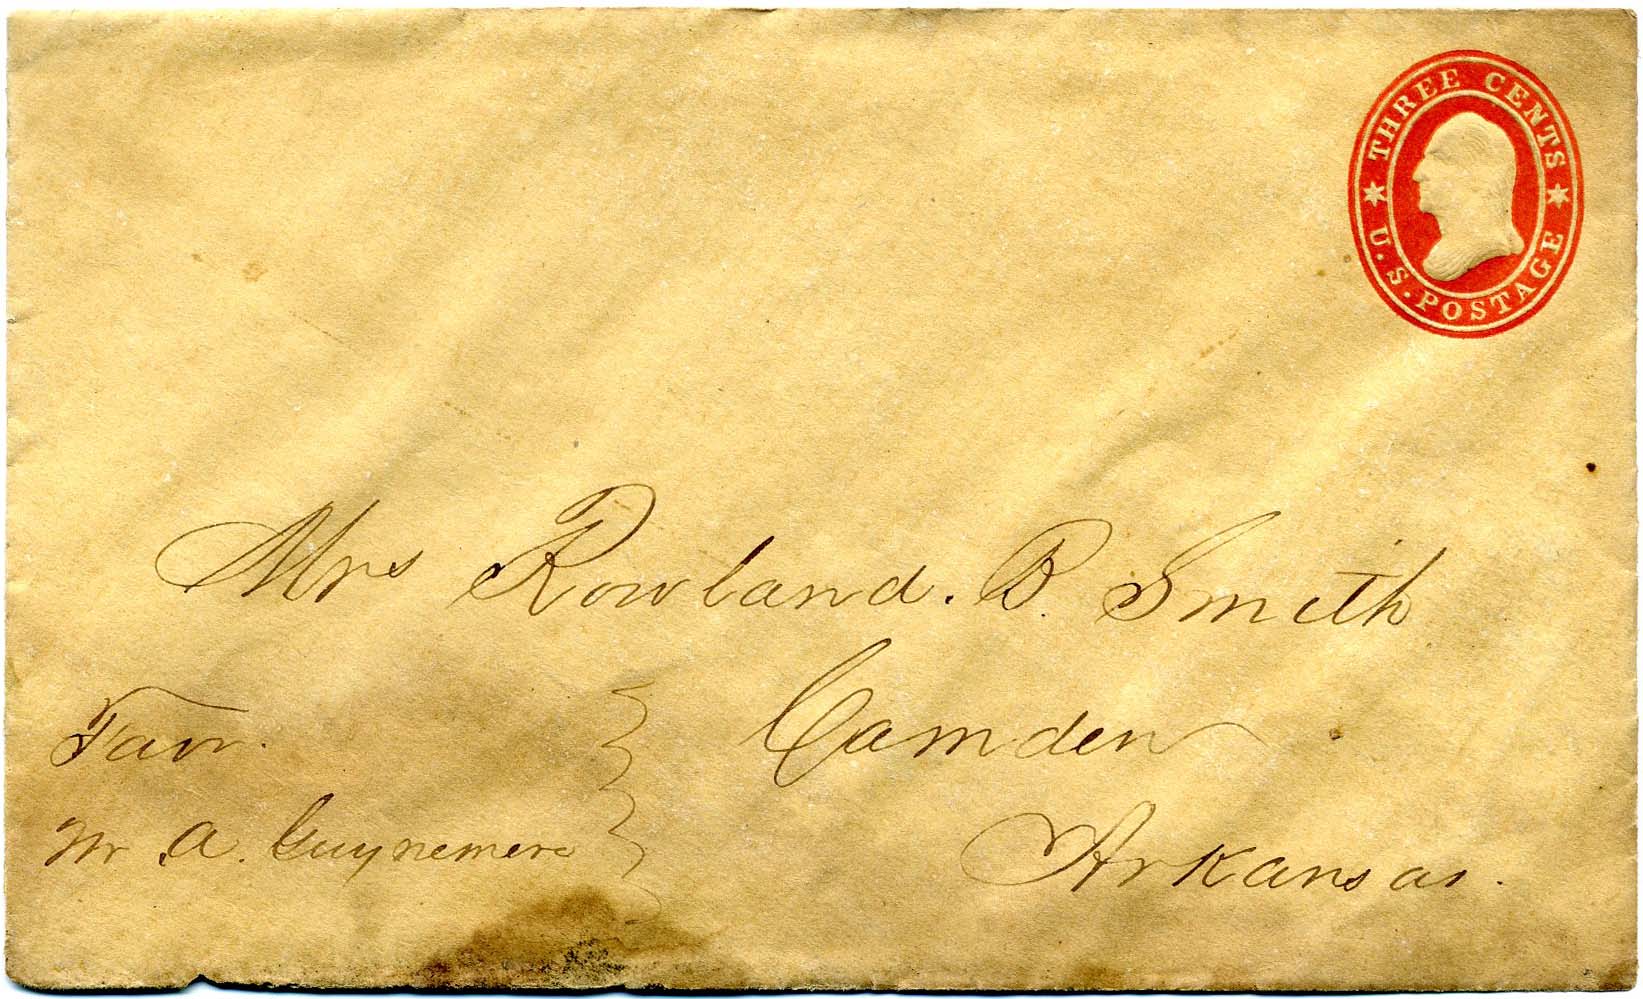 THREE CENTS
U.S. POSTAGE
Mrs Rowland. B. Smith
Camden
Arkansas.
Favr.
Mr. A. Guynemere